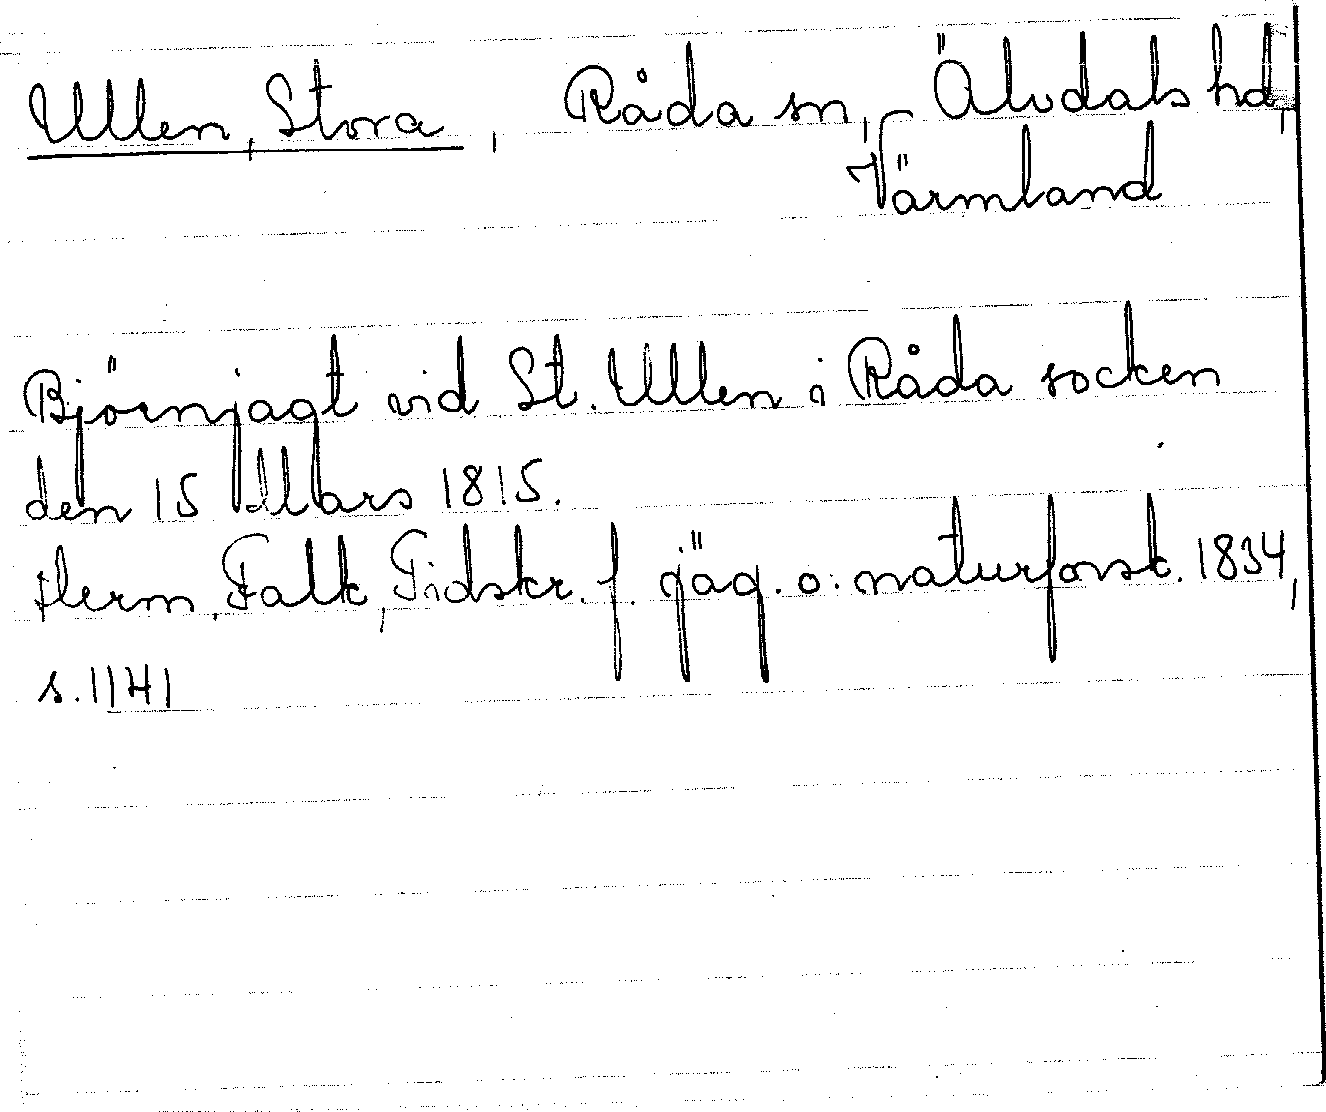 Ullen, Stora, Råda sn, Älvdals hd,
Värmland
Björnjagt vid St. Ullen i Råda socken
den 15 Mars 1815.
Herm. Falk, Tidskr. f. jäg. o. naturforsk. 1834,
s. 1141